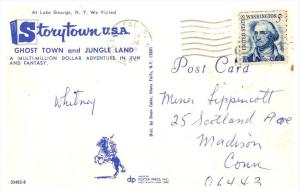 At Lake George, N. Y. We Visited
Storytown U.S.A.
GHOST TOWN and JUNGLE LAND
A MULTI-MILLION DOLLAR ADVENTURE IN FUN
AND FANTASY.
Whitney
33493-B
dp
Dist. by Dean Color, Glens Falls, N.Y. 12801
UNITED STATES
WASHINGTON 5c
Post Card
Miner Lippincott
25 Scotland Ave
Madison
Conn
06443